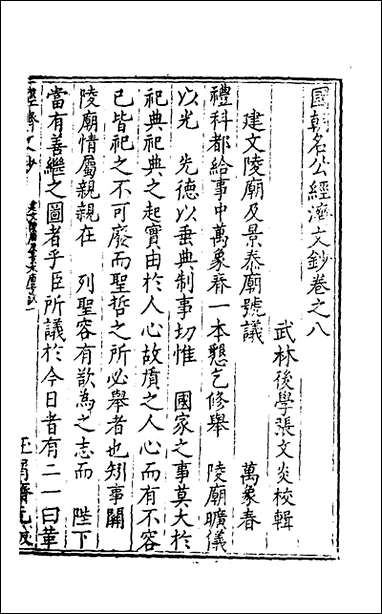 國朝名公經濟文鈔卷之八
武林後學張文炎校輯
建文陵廟及景泰廟號議 萬象春
禮科都給事中萬象春一本懇乞修舉 陵廟曠儀
以光 先德以垂典制事切惟 國家之事莫大於
祀典祀典之起實由於人心故質之人心而有不容
已皆祀之不可廢而聖哲之所必舉者也矧事關
陵廟情屬親親在 列聖容有欲為之志而 陛下
當有善繼之圖者乎臣所議於今日者有二一曰革
經濟文鈔